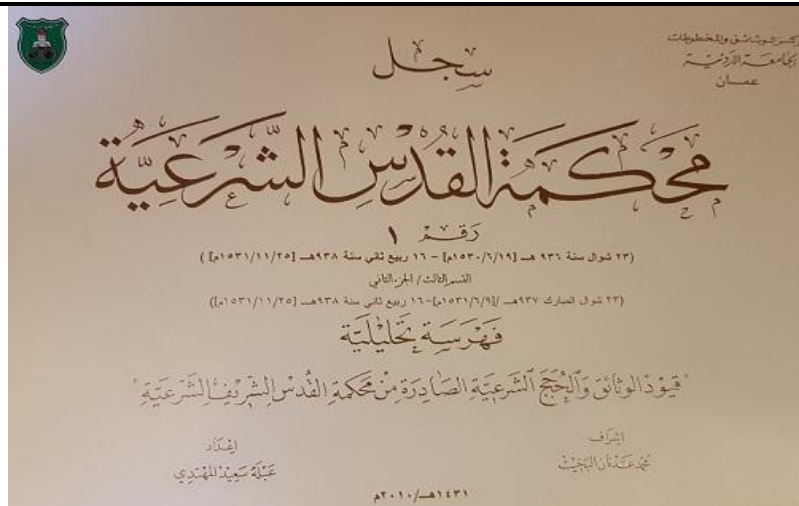 مركز الوثائق والمخطوطات
الجامعة الأردنية
عمان
سجل
محكمة القدس الشرعية
رقم ١
(٢٣ شوال سنة ٩٣٦ هـ [١٥٣٠/٦/١٩م] – ١٦ ربيع ثاني سنة ٩٣٨هـ [١٥٣١/١١/٢٥م] )
القسم الثالث/ الجزء الثاني
(٢٣ شوال المبارك ٩٣٧هـ /[١٥٣١/٦/٩م]–١٦ ربيع ثاني سنة ٩٣٨هـ [١٥٣١/١١/٢٥م])
فهرسة تحليلية
"قيود الوثائق والحجج الشرعية الصادرة من محكمة القدس الشريف الشرعية"
إشراف
محمد عدنان البخيت
إعداد
عبلة سعيد المهتدي
١٤٣١هـ/٢٠١٠م